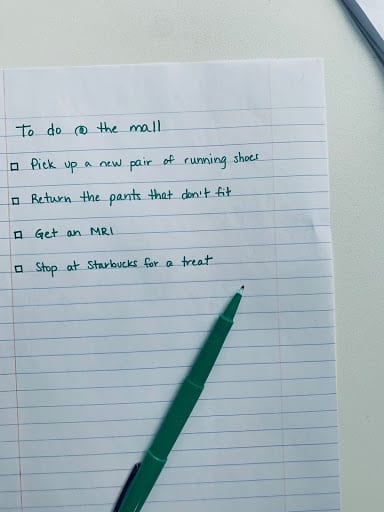 To do @ the mall
□ Pick up a new pair of running shoes
□ Return the pants that don't fit
□ Get an MRI
□ Stop at Starbucks for a treat